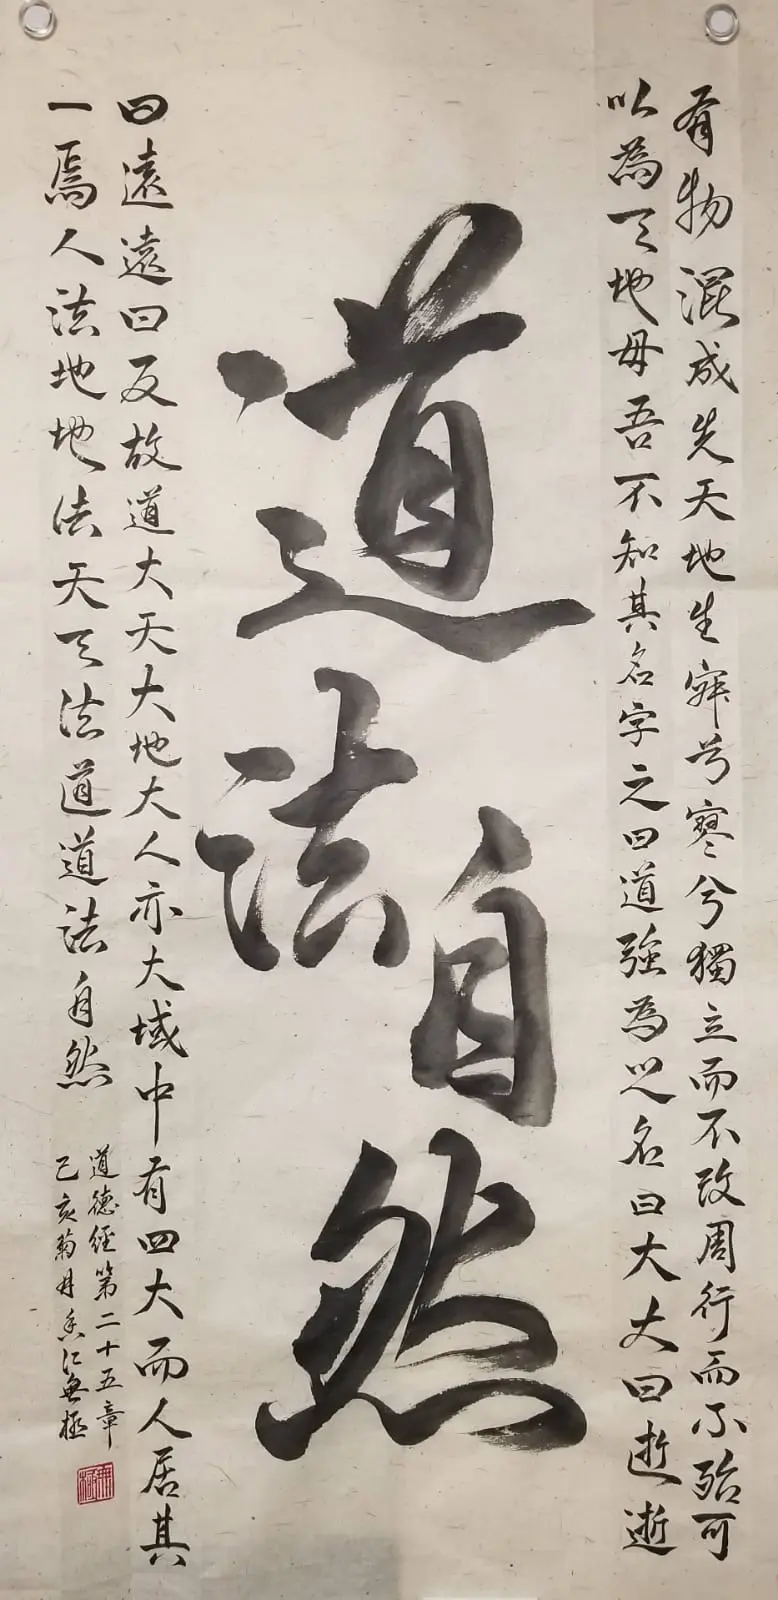 有物混成先天地生寂兮寥兮獨立而不改周行而不殆可
以為天地母吾不知其名字之曰道強為之名曰大大曰逝逝
道法自然
曰遠遠曰反故道大天大地大人亦大域中有四大而人居其
一焉人法地地法天天法道道法自然
道德經第二十五章
己亥菊月香江無極
無極